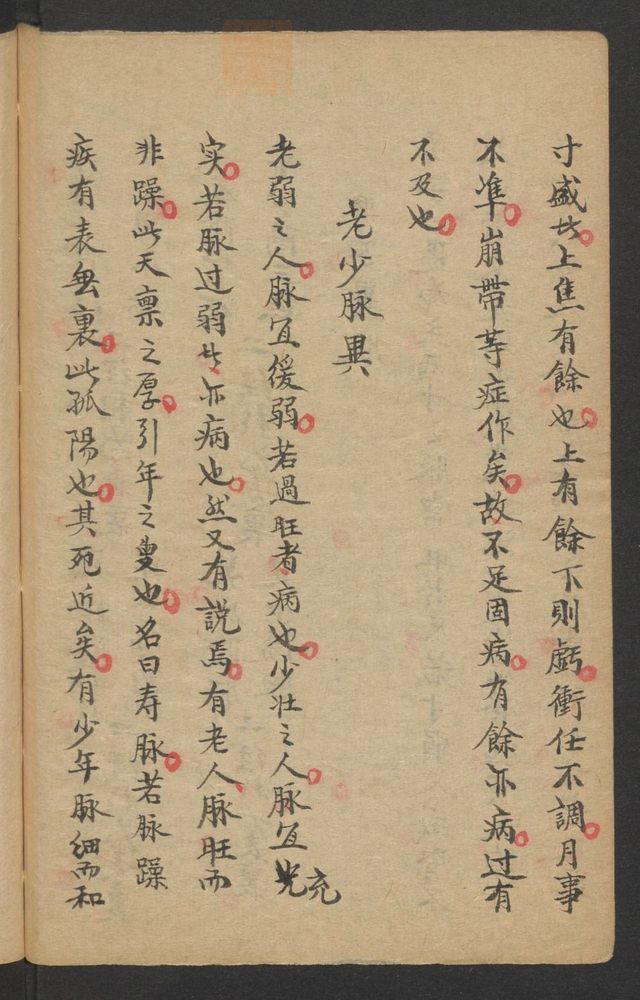 寸盛艹上焦有餘也上有餘下則虧衝任不調月事
不準崩帶等症作矣故不足固病有餘亦病过有
不及也
老少脉異
老弱之人脉宜缓弱若過旺者病也少壯之人脉宜充
实若脉过弱艹亦病也然又有説焉有老人脉旺而
非躁此天禀之厚引年之叟也名曰寿脉若脉躁
疾有表无裏此孤陽也其死近矣有少年脉細而和